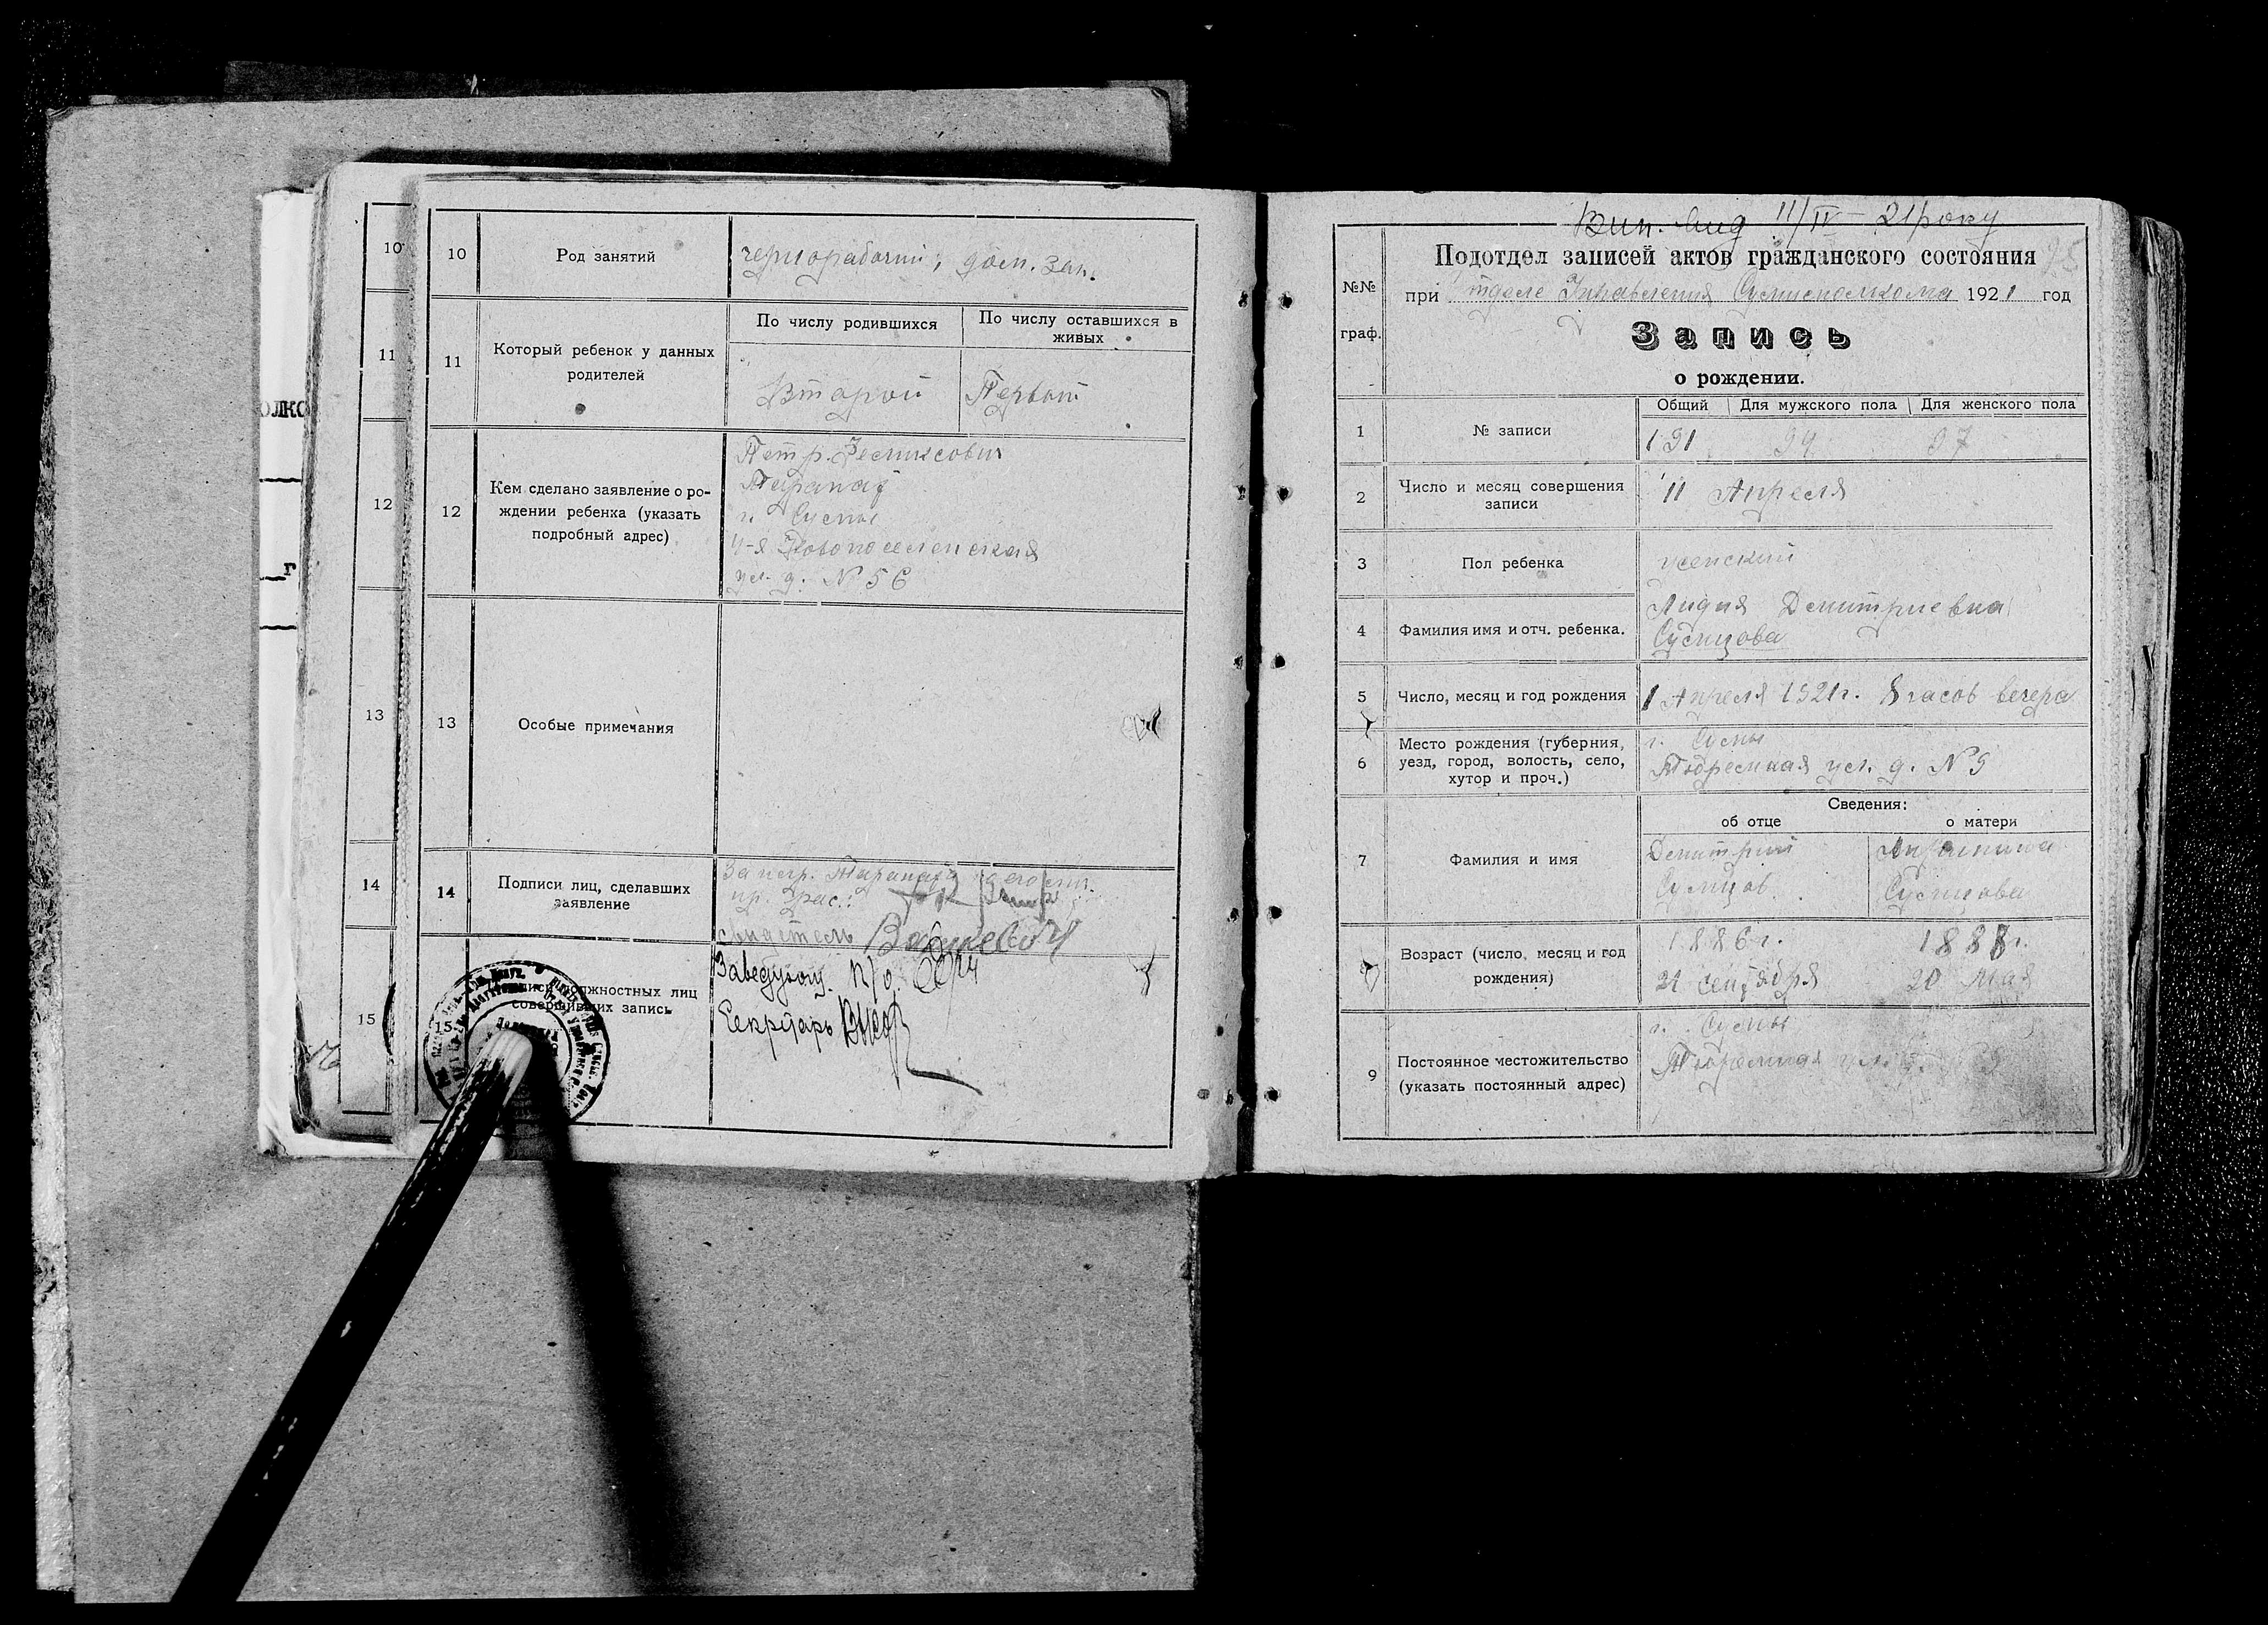 10
11
12
13
14
15
олко
г
10
Род занятий
чернорабочий, дом. зан.
11
Который ребенок у данных
родителей
По числу родившихся
По числу оставшихся в
живых
Второй
Первый
12
Кем сделано заявление о ро-
ждении ребенка (указать
подробный адрес)
Петр
г. Сумы
4-я Новопоселенская
ул. д. № 56
13
Особые примечания
14
Подписи лиц, сделавших
заявление
За негр.
свидетель
15
должностных лиц
совершивших запись
Заведующ. П/о.
Секретарь
Вип. вид 11/IV - 21 року
№№
граф.
Подотдел записей актов гражданского состояния
при Отделе Управления Сумисполкома 1921 год
Запись
о рождении.
1
№ записи
Общий
Для мужского пола
Для женского пола
191 94 97
2
Число и месяц совершения
записи
11 Апреля
3
Пол ребенка
женский
4
Фамилия имя и отч. ребенка.
Лидия Димитриевна
Сумцова
5
Число, месяц и год рождения
1 Апреля 1921 г. 8 часов вечера
6
Место рождения (губерния,
уезд, город, волость, село,
хутор и проч.)
г. Сумы
Тюремная ул. д. № 9
7
Фамилия и имя
Сведения:
об отце
о матери
Димитрий
Сумцов
Сумцова
Возраст (число, месяц и год
рождения)
1886 г.
21 сентября
1888 г.
20 Мая
9
Постоянное местожительство
(указать постоянный адрес)
г. Сумы
Тюремная ул. д. № 9